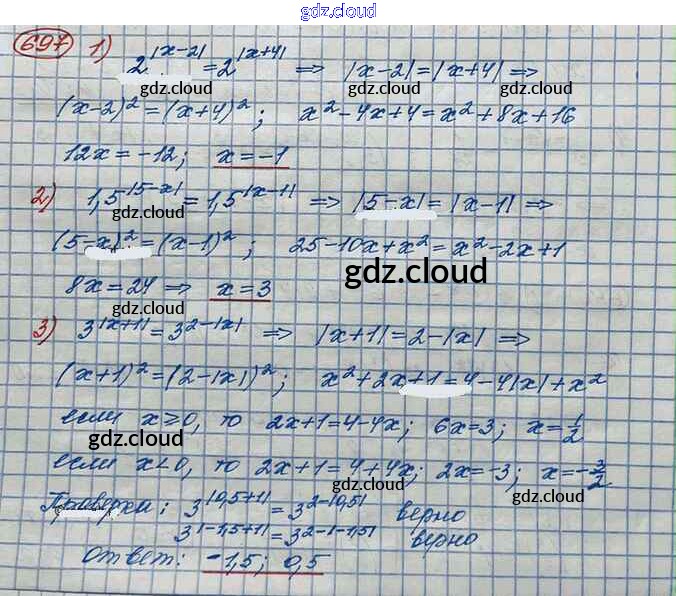 gdz.cloud
gdz.cloud
697 1) 2^|x-2| = 2^|x+4| => |x-2| = |x+4| =>
gdz.cloud gdz.cloud gdz.cloud
(x-2)² = (x+4)²; x² - 4x + 4 = x² + 8x + 16
12x = -12; x = -1
2) 1,5^|5-x| = 1,5^|x-1| => |5-x| = |x-1| =>
gdz.cloud gdz.cloud
(5-x)² = (x-1)²; 25 - 10x + x² = x² - 2x + 1
8x = 24 => x = 3
gdz.cloud
3) 3^|x+1| = 3^2-|x| => |x+1| = 2-|x| =>
(x+1)² = (2-|x|)²; x² + 2x + 1 = 4 - 4|x| + x²
gdz.cloud
если x ≥ 0, то 2x+1 = 4-4x; 6x = 3; x = 1/2
gdz.cloud
если x < 0, то 2x+1 = 4+4x; 2x = -3; x = -3/2
gdz.cloud
Проверка: 3^|0,5+1| = 3^2-|0,5| верно
gdz.cloud
3^|-1,5+1| = 3^2-|-1,5| верно
gdz.cloud
Ответ: -1,5; 0,5